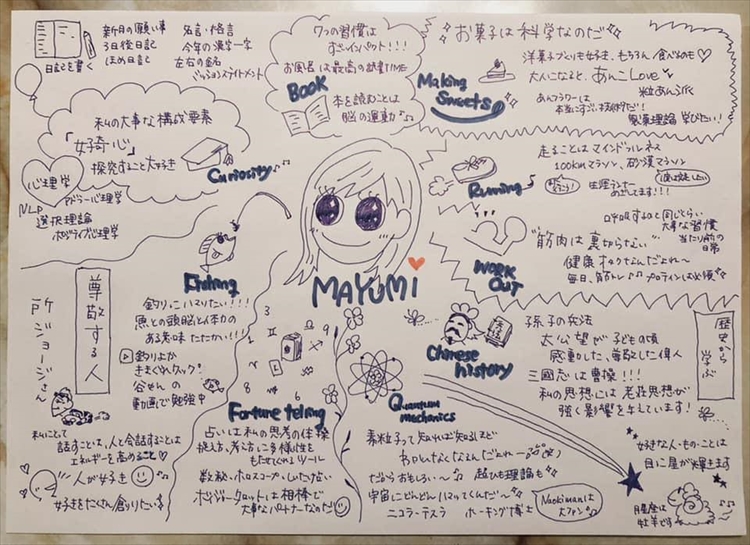 日記を書く
新月の願い事
3日後日記
ほめ日記
名言・格言
今年の漢字一字
左右の銘
ミッションステイトメント
7つの習慣は
ずーっとインパクト!!!
お風呂は最高の読書TIME
BOOK
本を読むことは
脳の運動♪
お菓子は科学なのだ
Making
Sweets
洋菓子づくりも好き、もちろん食べるのも♡
大人になると、あんこLove
粒あん派
あんフラワーは
製菓理論学びたい!
私の大事な構成要素
「好奇心」
探究すること大好き
Curiosity
心理学
NLP
アドラー心理学
選択理論
ポジティブ心理学
走ることはマインドフルネス
100kmマラソン、砂漠マラソン
生涯ランナー
めざします!!!
Running
呼吸するのと同じくらい
大事な習慣
当たり前の
日常
"筋肉は裏切らない"
健康オタクなんだよれ〜
毎日、筋トレ♪ プロテインは必須
WORK
OUT
MAYUMI
Fishing
釣りにハマりたい!!!
魚との頭脳と体力の
ある意味たたかい!!!
釣りよか
きまぐれクック!
谷やんの
動画で勉強中
尊敬する人
所ジョージさん
私にとって
話すことは、人と会話することは
エネルギーを高めること
人が好き
好きをたくさん創りたい
Fortune telling
占いは私の思考の体操
捉え方、考え方に多様性を
もたせてくれるツール
数秘、ホロスコープ、しちけい
ボイジャータロットは相棒で
大事なパートナーなのだ
Quantum
mechanics
素粒子って知れば知るほど
わけわかんなくなんだよれ〜
だからおもしろい〜 超ひも理論も
宇宙にどんどんハマってくんだ〜
ニコラ・テスラ ホーキング博士
Naokimanは
大ファン
Chinese
history
孫子の兵法
太公望が子どもの頃
感動した、尊敬した偉人
三國志は曹操!!!
私の思想には老荘思想が
強く影響を与えています!
歴史から学ぶ
好きな人・ものことは
目に星が輝きます
月星座は
牡羊です